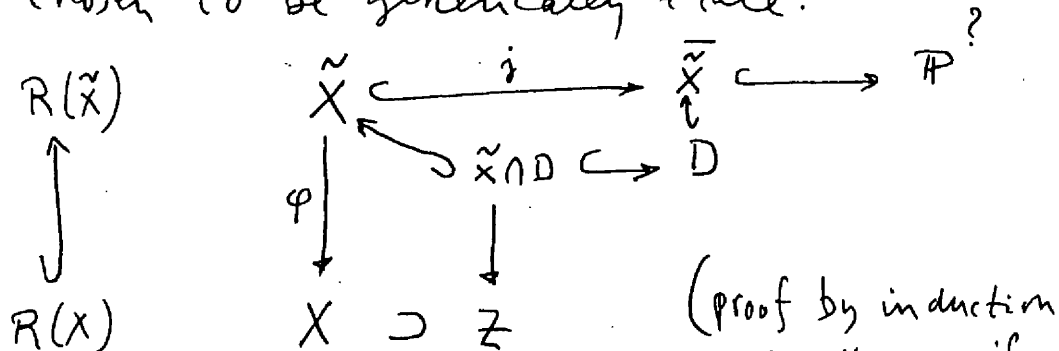 chosen to be generically finite.
R(X̃) X̃ j X̃̄ ℙ^?
X̃∩D D
φ
R(X) X ⊃ Z (proof by induction